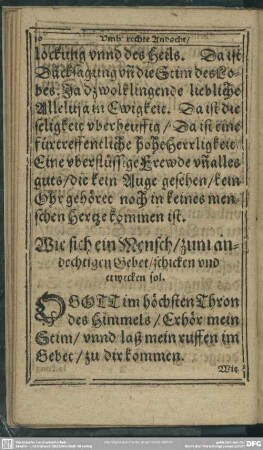 Vmb rechte Andacht/
lockung vnnd des Heils. Da ist
Dācksagung vn̄ die Stim des Lo-
bes. Ja da wolklinget liebliche
Alleluja in Ewigkeit. Da ist die
seligkeit vberheuffig/ Da ist eine
fürtreffentliche hohe Herrligkeit
Eine vberflüssige Frewde vn̄ alles
guts/ die kein Auge gesehen/ kein
Ohr gehöret noch in keines men-
schen Hertze kommen ist.
Wie sich ein Mensch/ zum an-
dechtigen Gebet/ schicken vnd
erwecken sol.
O GOTT im höchsten Thron
des Himmels/ Erhör mein
Stim/ vnnd laß mein ruffen im
Gebet/ zu dir kommen.
Wie